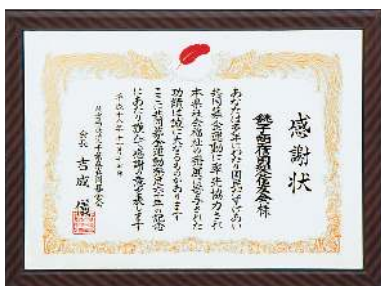 感謝状
銚子朝夜明愛友会 様
あなたは多年にわたり国民たすけあい
共同募金運動に率先協力され
本県社会福祉の発展に寄与された
功績は誠に大なるものがあります
ここに共同募金運動発足六十年の記念
にあたり謹んで感謝の意を表します
平成十八年十一月十七日
社会福祉法人千葉県共同募金会
会長 吉成 儀